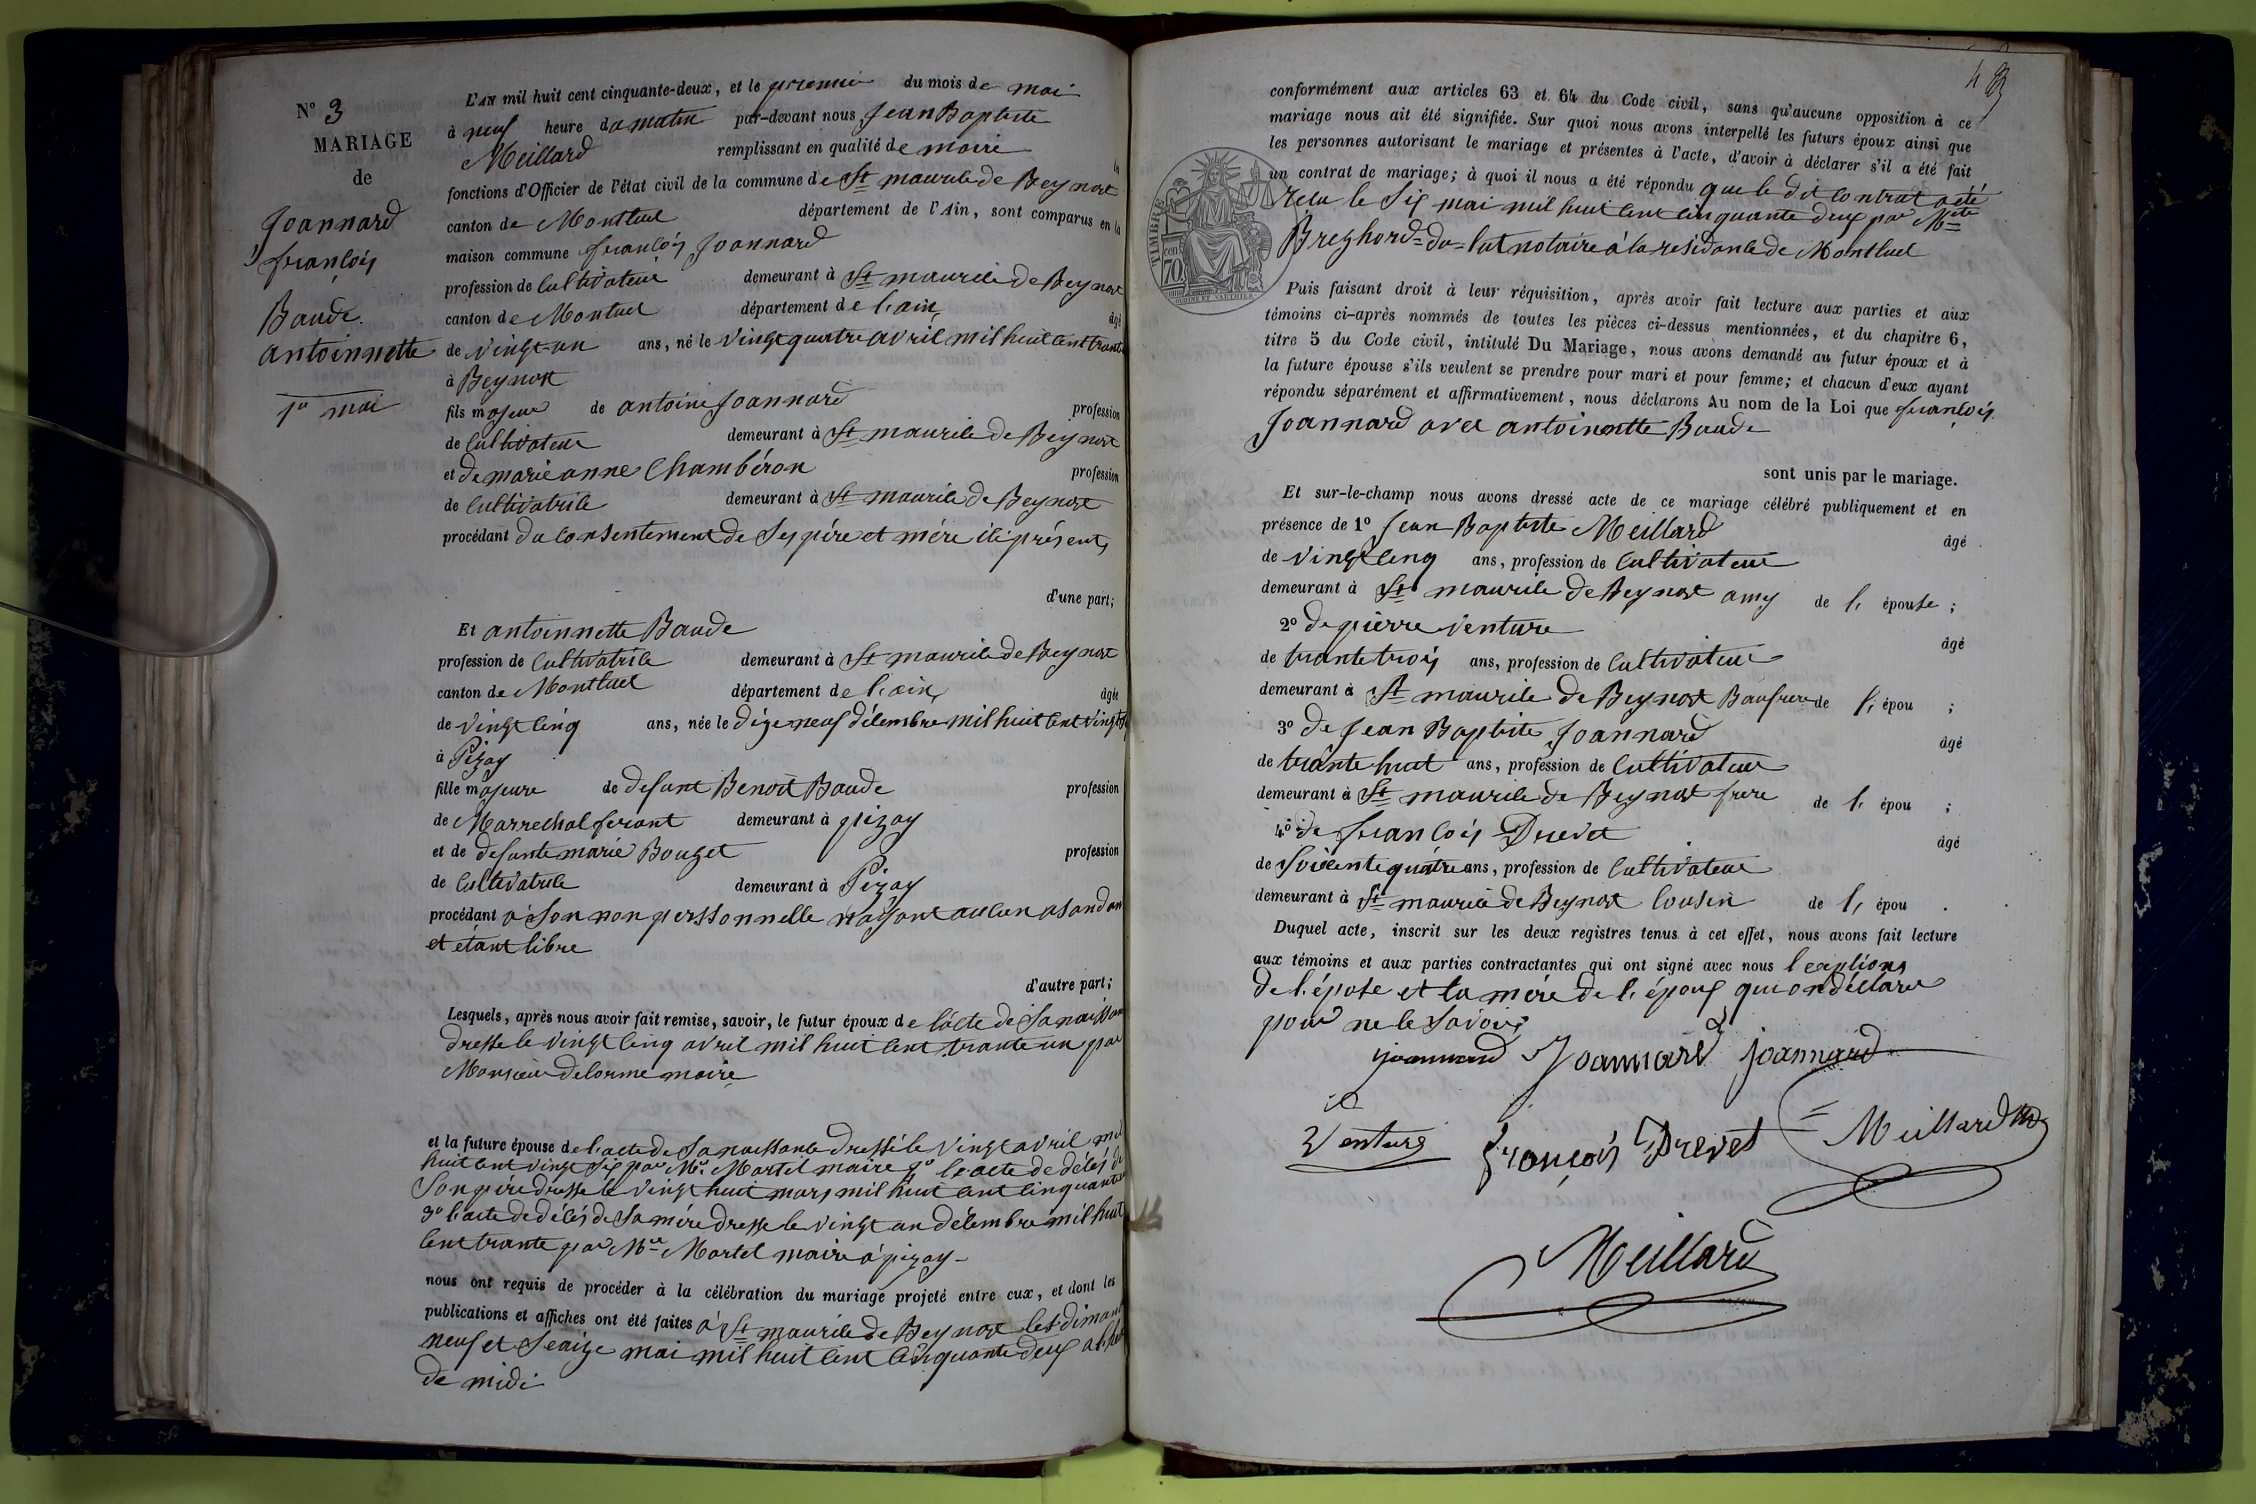 N° 3
MARIAGE
de
Joannard
françois
Baude
antoinnette
1er mai
L'AN mil huit cent cinquante-deux, et le premier du mois de mai
à neuf heure du matin par-devant nous, Jean Baptiste
Meillard remplissant en qualité de maire
fonctions d'Officier de l'état civil de la commune de St maurice de Beynost
canton de Montluel département de l'Ain, sont comparus en la
maison commune françois Joannard
profession de Cultivateur demeurant à St maurice de Beynost
canton de Montuel département de l'ain, âgé
de vingt un ans, né le vingt quatre avril mil huit cent trante
à Beynost
fils majeur de antoine Joannard profession
de Cultivateur demeurant à St maurice de Beynost
et de marie anne Chambéron profession
de Cultivatrice demeurant à St maurice de Beynost
procédant du Consentement de Ses père et mère ici présent,
d'une part;
Et antoinnette Baude
profession de Cultivatrice demeurant à St maurice de Beynost
canton de Montluel département de l'ain, âgée
de vingt cinq ans, née le dize neuf décembre mil huit cent vingt
à Pizay
fille majeure de defunt Benoit Baude profession
de Marrechal ferant demeurant à pizay
et de defunte marie Bouget profession
de Cultivatrice demeurant à Pizay
procédant à Son non perssonnelle n'ayant aucun asandan
et étant libre
d'autre part;
Lesquels, après nous avoir fait remise, savoir, le futur époux de l'acte de Sa naissan
dresse le vingt cinq avril mil huit cent trante un par
Monsieur delorme maire
et la future épouse de l'acte de Sa naissance dressé le vingt avril mil
huit cent vingt six par Mr. Martel maire 2° le acte de décés de
Son père dresse le vingt huit mars mil huit cent cinquante
3° l'acte de décés de Sa mère dresse le vingt un décembre mil huit
cent trante par Mr Martel maire à pizay
nous ont requis de procéder à la célébration du mariage projeté entre eux, et dont les
publications et affiches ont été faites à St maurice de Beynost les diman
neuf et Seaize mai mil huit cent cinquante deux
de midi
conformément aux articles 63 et 64 du Code civil, sans qu'aucune opposition à ce
mariage nous ait été signifiée. Sur quoi nous avons interpellé les futurs époux ainsi que
les personnes autorisant le mariage et présentes à l'acte, d'avoir à déclarer s'il a été fait
un contrat de mariage; à quoi il nous a été répondu que le dit Contrat a été
recu le Six mai mil huit cent cinquante deux par Mtre
notaire à la residance de Montluel
TIMBRE
70
Puis faisant droit à leur réquisition, après avoir fait lecture aux parties et aux
témoins ci-après nommés de toutes les pièces ci-dessus mentionnées, et du chapitre 6,
titre 5 du Code civil, intitulé Du Mariage, nous avons demandé au futur époux et à
la future épouse s'ils veulent se prendre pour mari et pour femme; et chacun d'eux ayant
répondu séparément et affirmativement, nous déclarons Au nom de la Loi que françois
Joannard avec antoinnette Baude
sont unis par le mariage.
Et sur-le-champ nous avons dressé acte de ce mariage célébré publiquement et en
présence de 1° Jean Baptiste Meillard âgé
de vingt cinq ans, profession de Cultivateur
demeurant à St maurice de Beynost amy de l, épouse ;
2° de pierre venture âgé
de trante trois ans, profession de Cultivateur
demeurant à St maurice de Beynost Baufrere de l, épou ;
3° de Jean Baptiste Joannard âgé
de trante huit ans, profession de Cultivateur
demeurant à St maurice de Beynost frere de l, épou ;
4° de françois Drevet âgé
de Soixente quatre ans, profession de Cultivateur
demeurant à St maurice de Beynost Cousin de l, épou .
Duquel acte, inscrit sur les deux registres tenus à cet effet, nous avons fait lecture
aux témoins et aux parties contractantes qui ont signé avec nous l'exption
de l'épose et la mère de l'époux qui on déclare
pour ne le Savoir
joannard Joannard joannard
Venture françois Drevet Meillard
Meillard